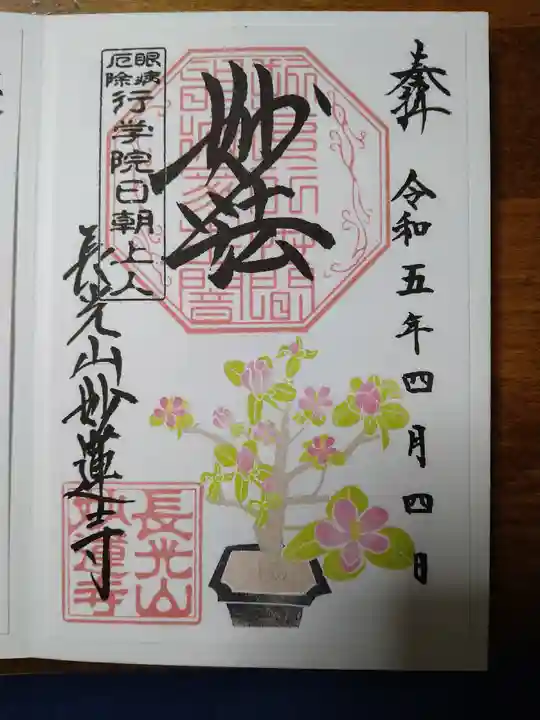 奉拝
令和五年四月四日
妙法
眼病
厄除
行学院日朝上人
長光山妙蓮寺
長光山
妙蓮寺